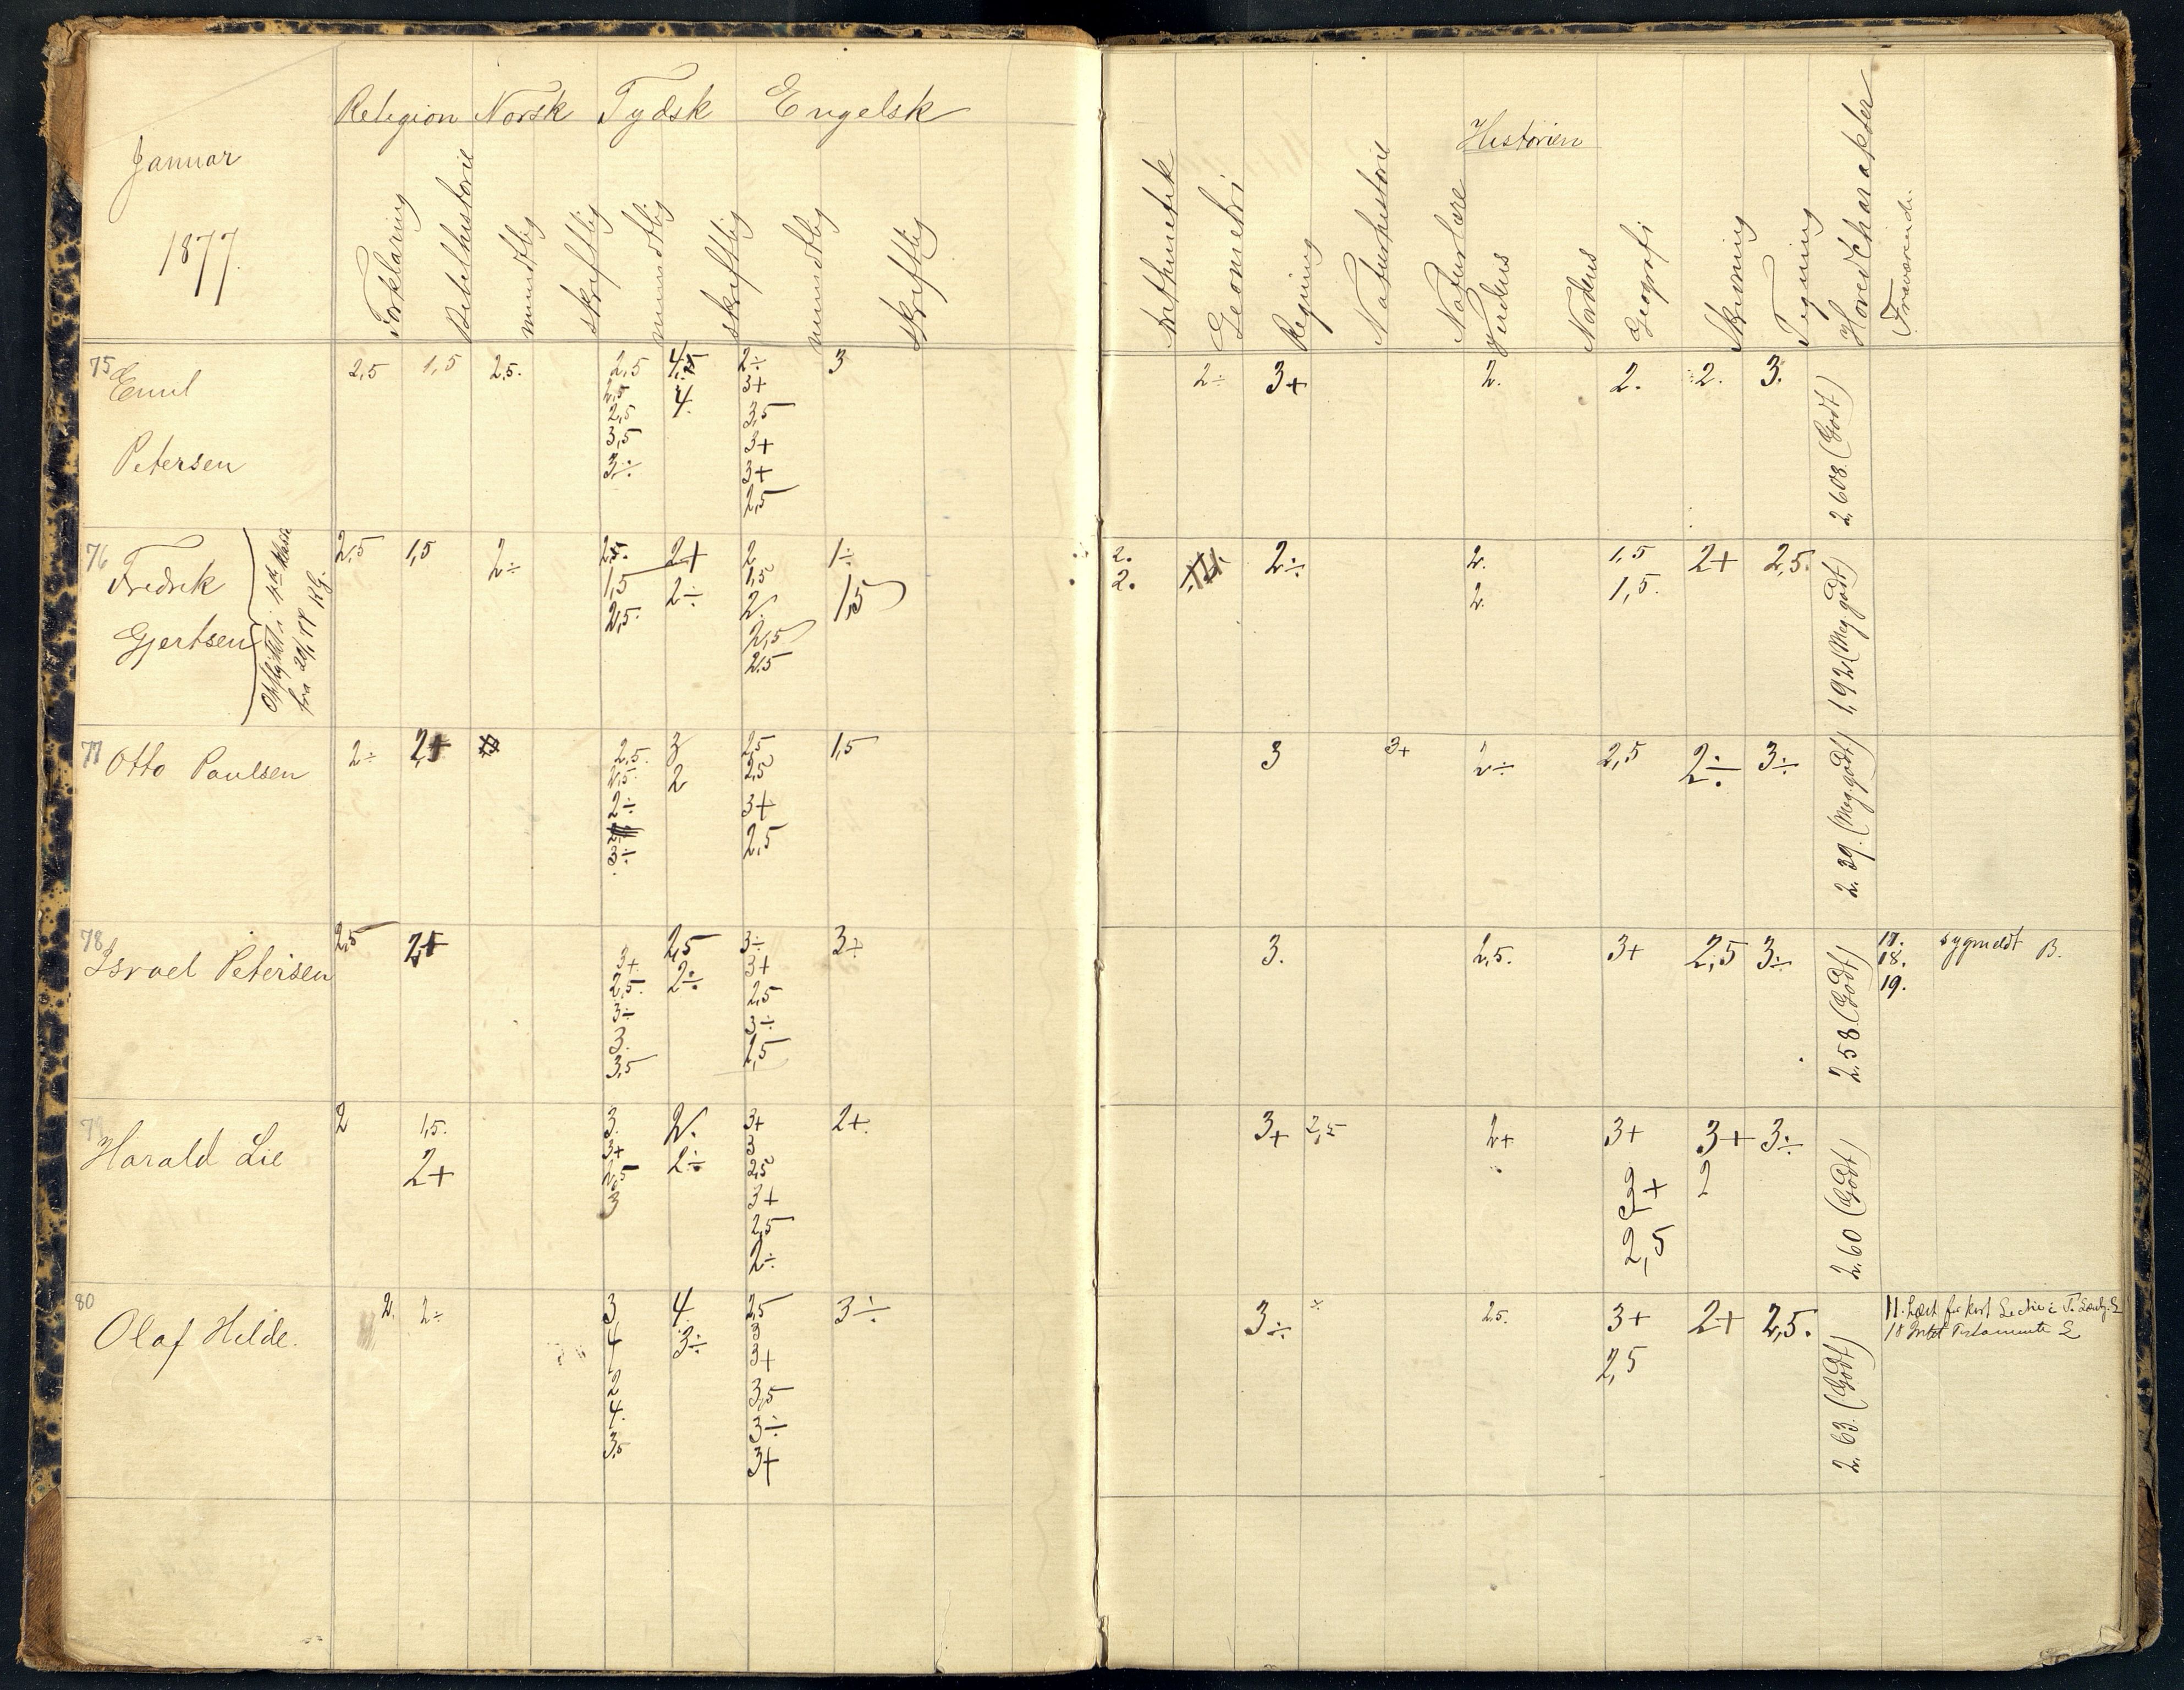 Januar
1877.
Religion Norsk Tydsk Engelsk
Forklaring
Bibelhistorie
mundtlig
skriftlig
mundtlig
skriftlig
mundtlig
skriftlig
Arithmetik
Geometri
Regning
Naturhistorie
Naturlære
Historien
Verdens
Nordens
Geografi
Skrivning
Tegning
Hovedcharakter
Fraværende.
75 Emil
Petersen
2,5 1,5 2,5.
2,5
2,5
2,5
3,5
3÷
4,5
4.
2÷
3+
3,5
3+
3+
2,5
3
2÷ 3+ 2. 2. 2. 3.
2,608. (Godt)
76 Fredrik
Gjertsen
Opflyttet i klasse
fra 20/1 77 KG.
2,5 1,5 2÷
2,5.
1,5
2,5.
2+
2÷
2
1,5
2.
2,5
2,5
1÷
1,5
2.
2.
2÷
2.
2.
1,5
1,5.
2+ 2,5.
1,92 (Meg. godt)
77 Otto Paulsen
2÷ 2+
2,5.
2,5.
2÷
3÷
3
2
2,5
2,5
3+
2,5
1,5
3 3+ 2÷ 2,5 2÷ 3÷
2.39. (Meg. godt)
78 Israel Petersen
2,5 2+
3+
2,5.
3÷
3.
3,5
2,5
2÷
3÷
3+
2,5
3÷
2,5
3÷
3. 2,5. 3+ 2,5 3÷
2.58 (Godt)
17.
18.
19.
sygmeldt B.
79
Harald Lie
2
1,5.
2+
3.
3+
2,5
3
2.
2÷
3+
3
2,5
3+
2,5
2÷
2+.
3+ 2,5 2+
3+
3+
2,5
3+
2
3÷
2.60 (Godt)
80
Olaf Helde.
2. 2÷
3
4
2
4.
3,5
4.
3÷
2,5
3
3+
3,5
3÷
3+
3÷
3÷ 2,5.
3+
2,5
2+ 2,5.
2.63. (Godt)
11. Læst for kort Lectie i T.
18 Intet Testamente